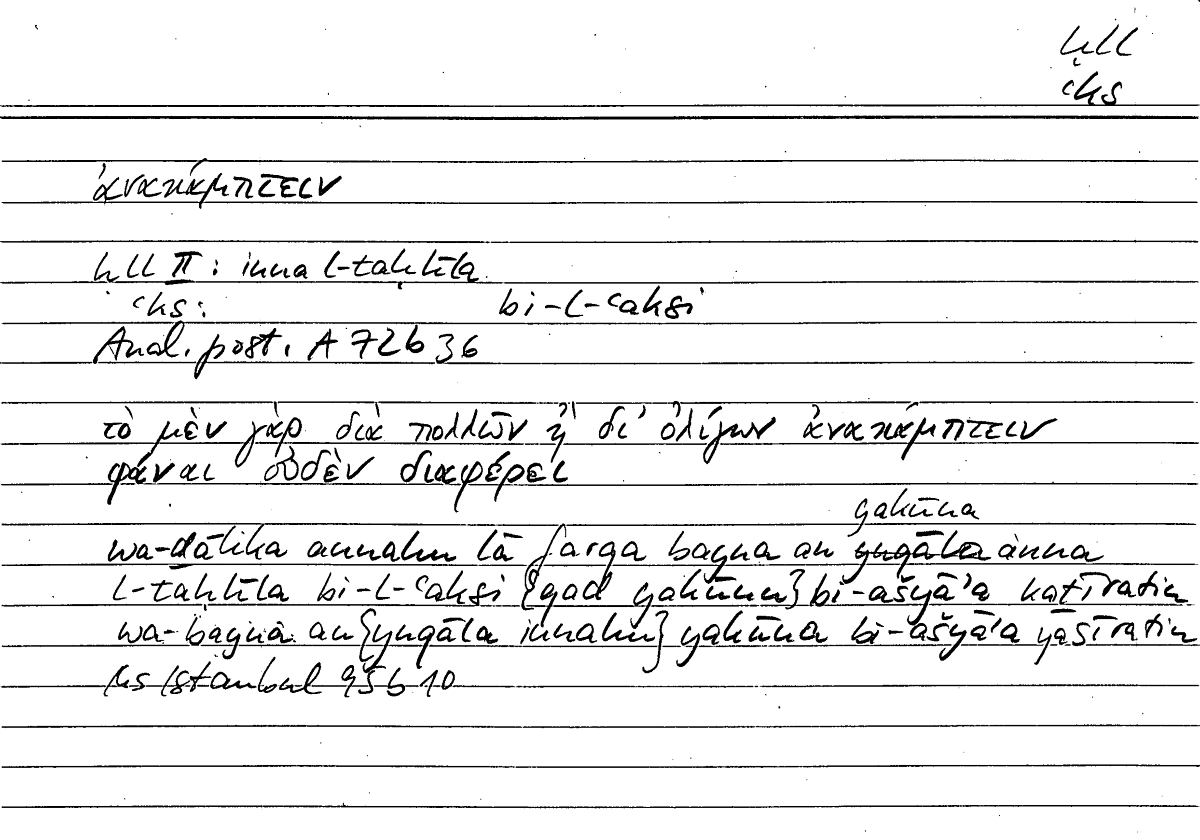 ḥll
ʿks
ἀνακάμπτειν
ḥll II: inna l-taḥlīla
ʿks: bi-l-ʿaksi
Anal. post. A 72b36
τὸ μὲν γὰρ διὰ πολλῶν ἢ δι' ὀλίγων ἀνακάμπτειν
φάναι οὐδὲν διαφέρει
yakūna
wa-ḏālika annahu lā farqa bayna an yuqāla inna
l-taḥlīla bi-l-ʿaksi {qad yakūnu} bi-ašyāʾa kaṯīratin
wa-bayna an {yuqāla innahu} yakūna bi-ašyāʾa yasīratin
Ms Istanbul 95b10